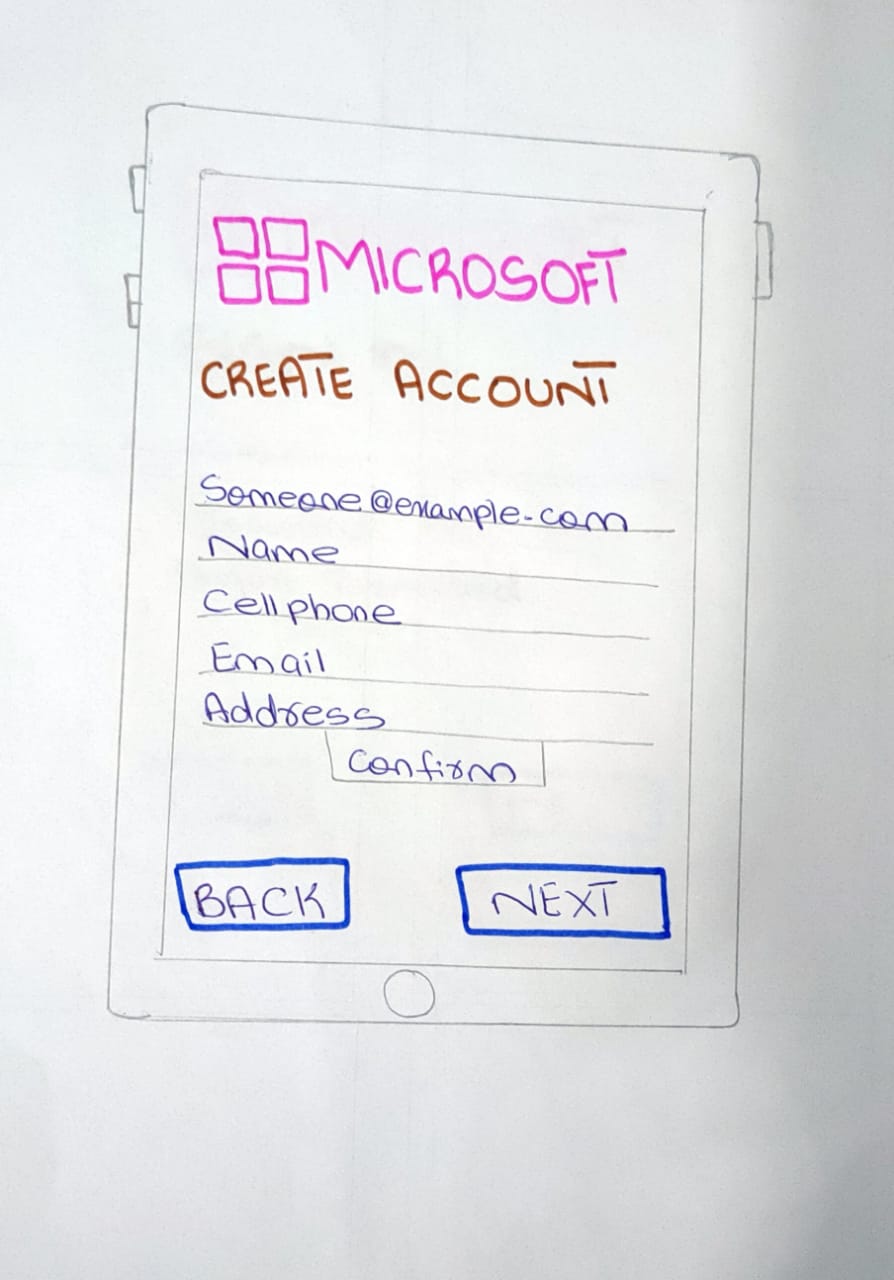 MICROSOFT
CREATE ACCOUNT
Someone@example.com
Name
Cellphone
Email
Address
Confirm
BACK NEXT